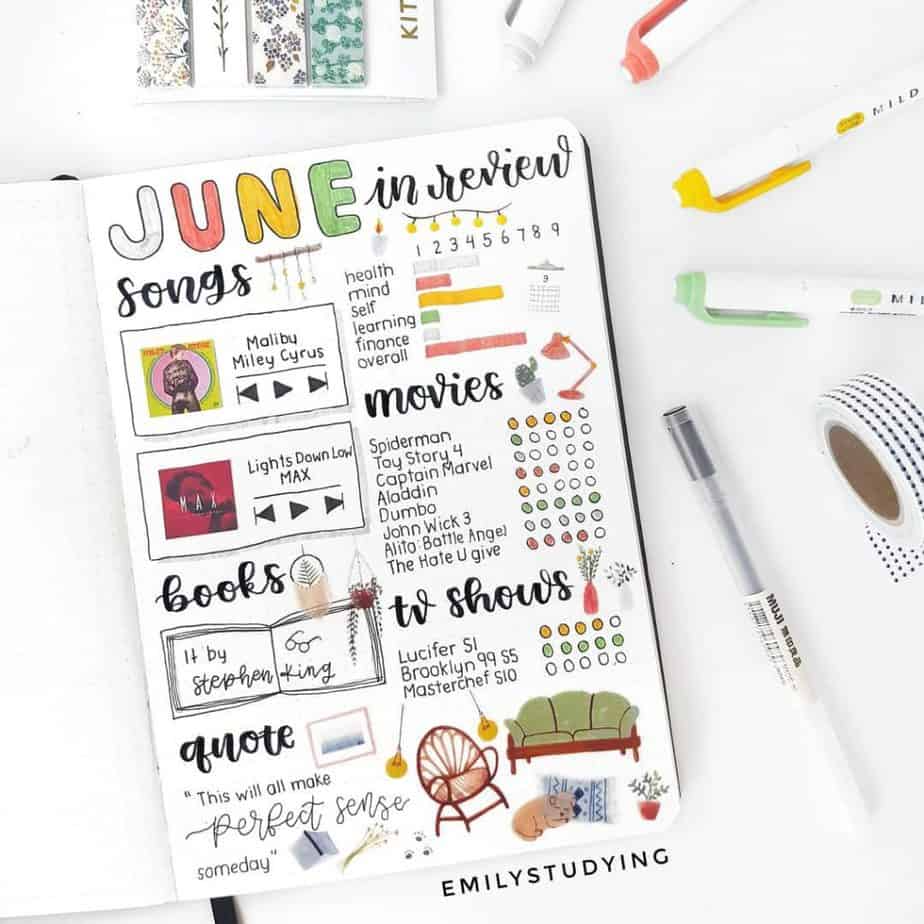 KIT
JUNE in review
songs
Maliby
Miley Cyrus
Lights Down Low
MAX
MAX
books
It by
stephen king
quote
" This will all make
perfect sense
someday"
1 2 3 4 5 6 7 8 9
health
mind
self
learning
finance
overall
9
movies
Spiderman
Toy Story 4
Captain Marvel
Aladdin
Dumbo
John Wick 3
Alita: Battle Angel
The Hate U give
tv shows
Lucifer S1
Brooklyn 99 S5
Masterchef S10
EMILYSTUDYING
MILD
MILD
MUJI 無印良品